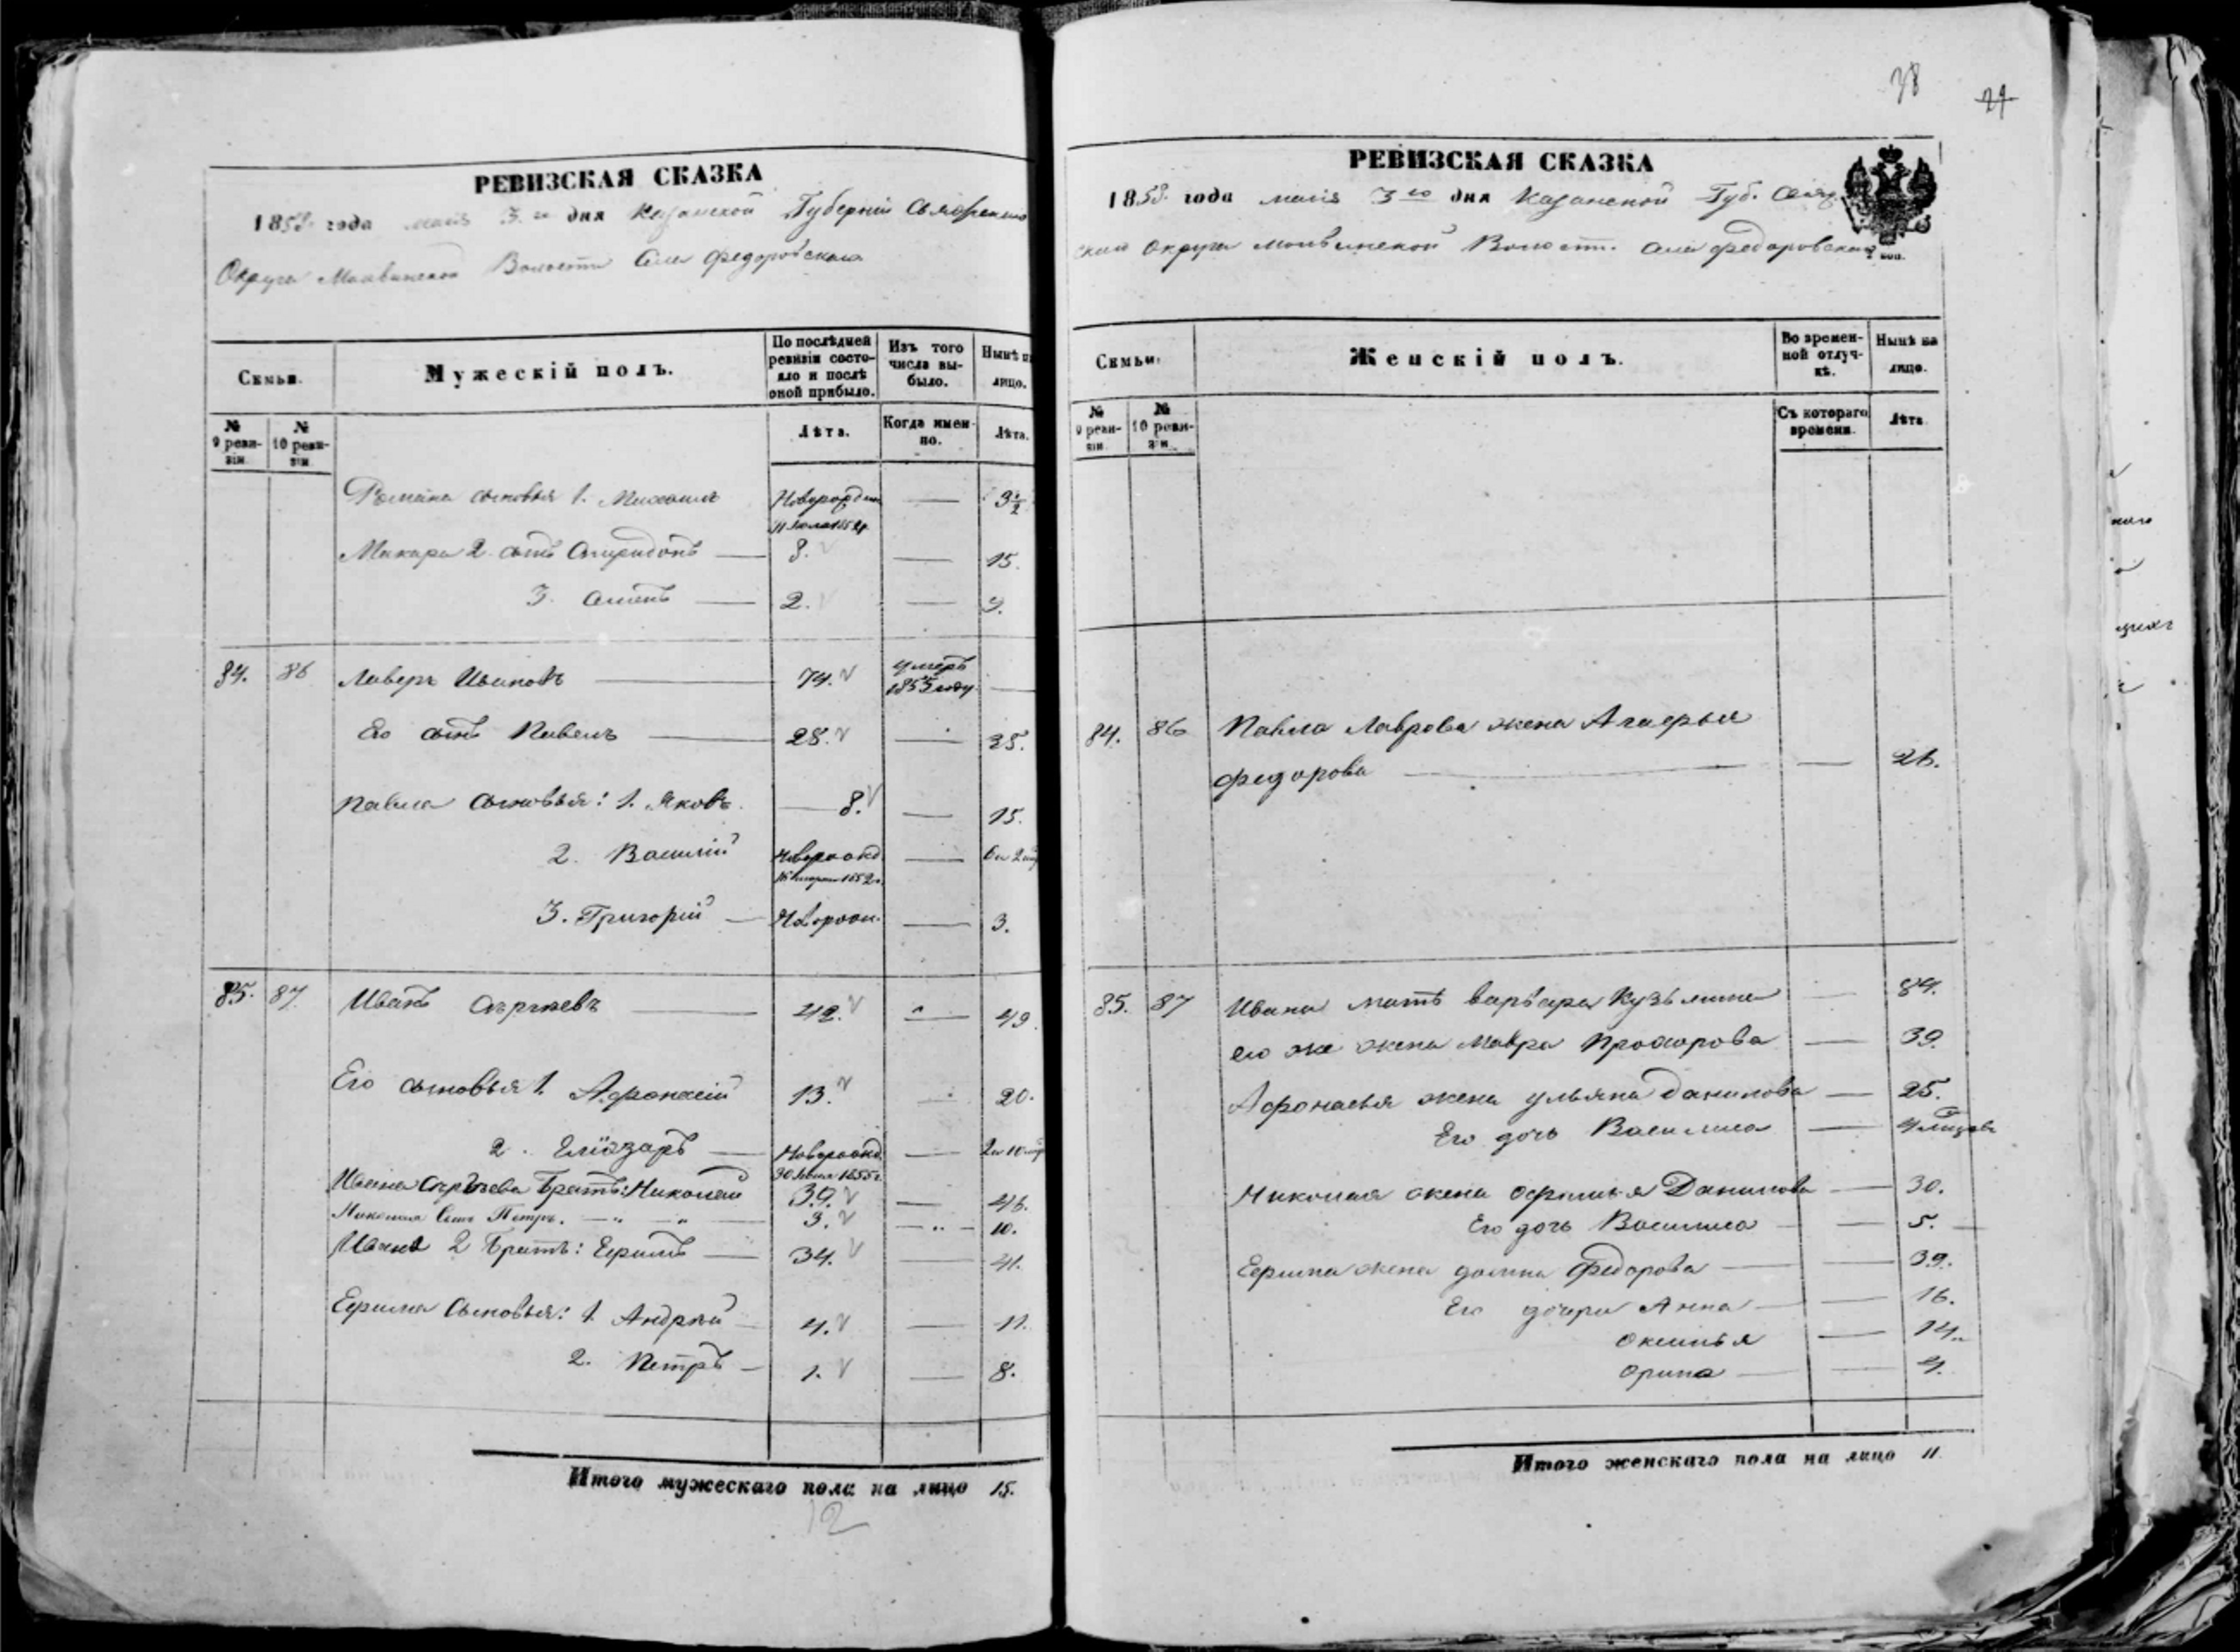 38
24
РЕВИЗСКАЯ СКАЗКА
1858 года маія 3го дня Казанской Губерніи Свіяжскаго
Округа Молвинской Волости Села Федоровскаго
Семьи.
Мужескій полъ.
По послѣдней ревизіи состояло и послѣ оной прибыло.
Изъ того числа выбыло.
Нынѣ на лицо.
№ 9 ревизіи
№ 10 ревизіи
Лѣта.
Когда именно.
Лѣта.
Романа сыновья 1. Михаилъ Новорожден — 3½
11 1854
Макара 2. сынъ Спиридонъ — 8. — 15.
3. — 2. — 9.
84. 86 Лаверъ Ивановъ — 74. умеръ 1855 году —
Его сынъ Павелъ — 28. — 35.
Павла сыновья: 1. Яковъ. — 8. — 15.
2. Василій новорожд — 6 и 2
16 1852
3. Григорій — новрожд. — 3.
85. 87. Иванъ Сергѣевъ — 42. — 49.
Его сыновья 1. Афонасій 13. — 20.
2. Еліозаръ — новорожд. — 2 и 10
30 Іюня 1855 г.
Ивана Сергѣева Братъ: Николай 39. — 46.
Николая Сынъ Петръ. — 3. — 10.
Ивана 2 Братъ: Ефимъ — 34. — 41.
Ефима Сыновья: 1. Андрей — 4. — 11.
2. Петръ — 1. — 8.
Итого мужескаго пола на лицо 15.
12
РЕВИЗСКАЯ СКАЗКА
1858 года маія 3го дня Казанской Губ. Свіяж
скаго Округа Молвинской Волости. Села Федоровскаго
коп.
Семьи
Женскій полъ.
Во временной отлучкѣ.
Нынѣ на лицо.
№ 9 ревизіи
№ 10 ревизіи
Съ котораго времени.
Лѣта
84. 86 Павла Лаврова жена Агаѳья
Федорова — — 26.
85. 87 Ивана мать варвара Кузьмина — 84.
его же жена Мавра Прохорова — 39.
Афонасья жена ульяна Данилова — 25.
Его дочь Василиса —
Николая жена Данилова — 30.
Его дочь Василиса — 5.
Ефима жена домна Федорова — 39.
Его дочери Анна — 16.
Оксинья — 14.
Орина — 4.
Итого женскаго пола на лицо 11